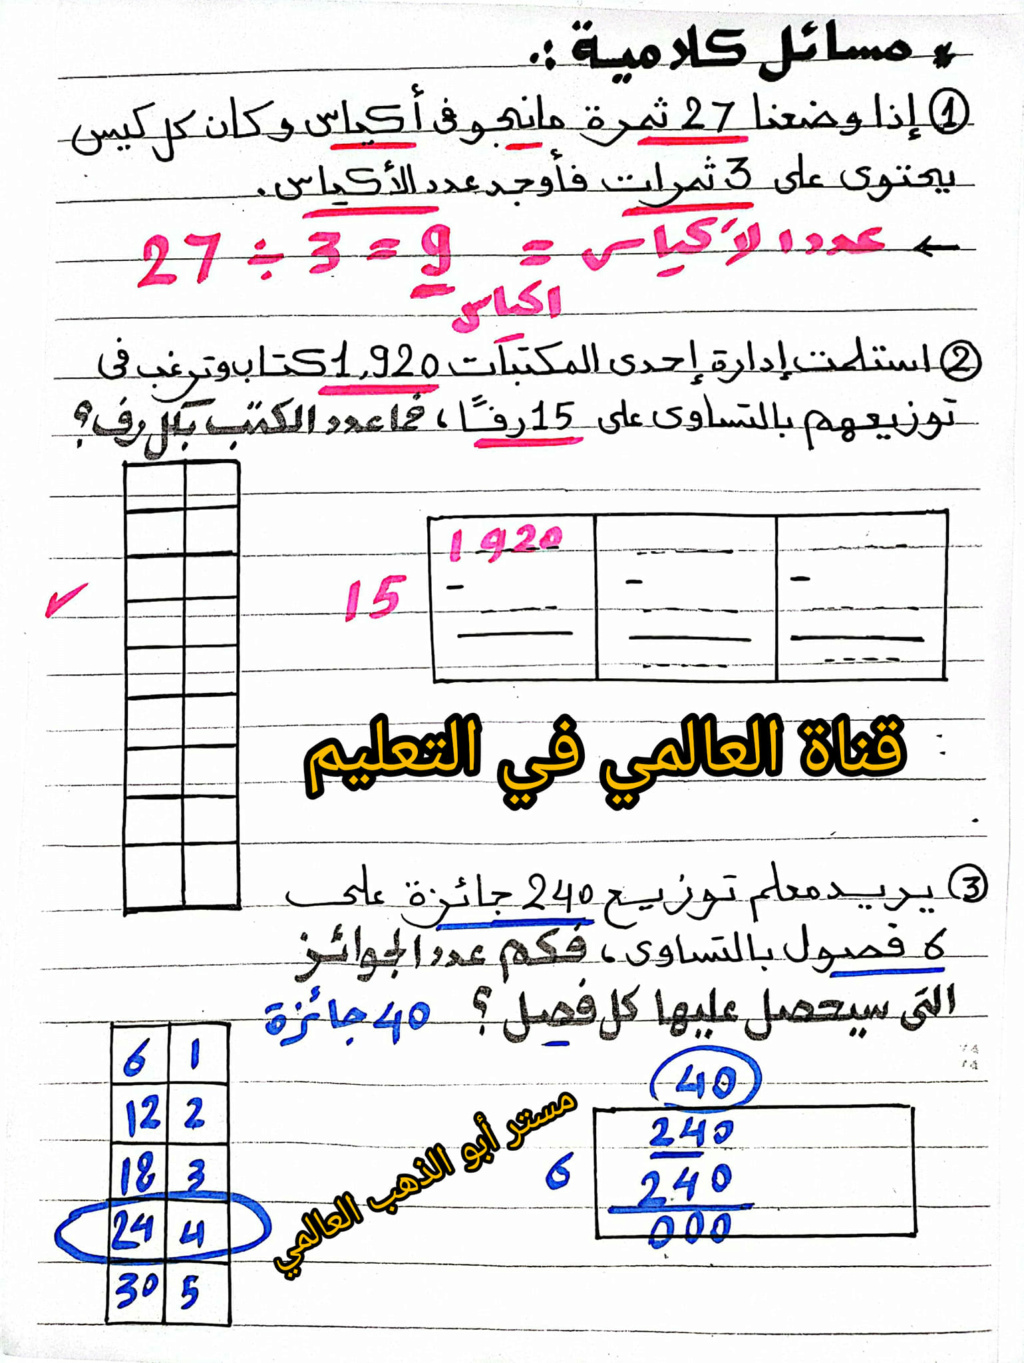 * مسائل كلامية :.
① إذا وضعنا 27 ثمرة مانجو فى أكياس وكان كل كيس
يحتوى على 3 ثمرات فأوجد عدد الأكياس.
← عدد الأكياس = 27 ÷ 3 = 9
اكياس
② استلمت إدارة إحدى المكتبات 1,920 كتاب وترغب فى
توزيعهم بالتساوى على 15 رفًا، فما عدد الكتب بكل رف؟
1920
15
قناة العالمي في التعليم
③ يريد معلم توزيع 240 جائزة على
6 فصول بالتساوى، فكم عدد الجوائز
التى سيحصل عليها كل فصل؟ 40 جائزة
40
240
6
240
000
6 1
12 2
18 3
24 4
30 5
مستر أبو الذهب العالمي